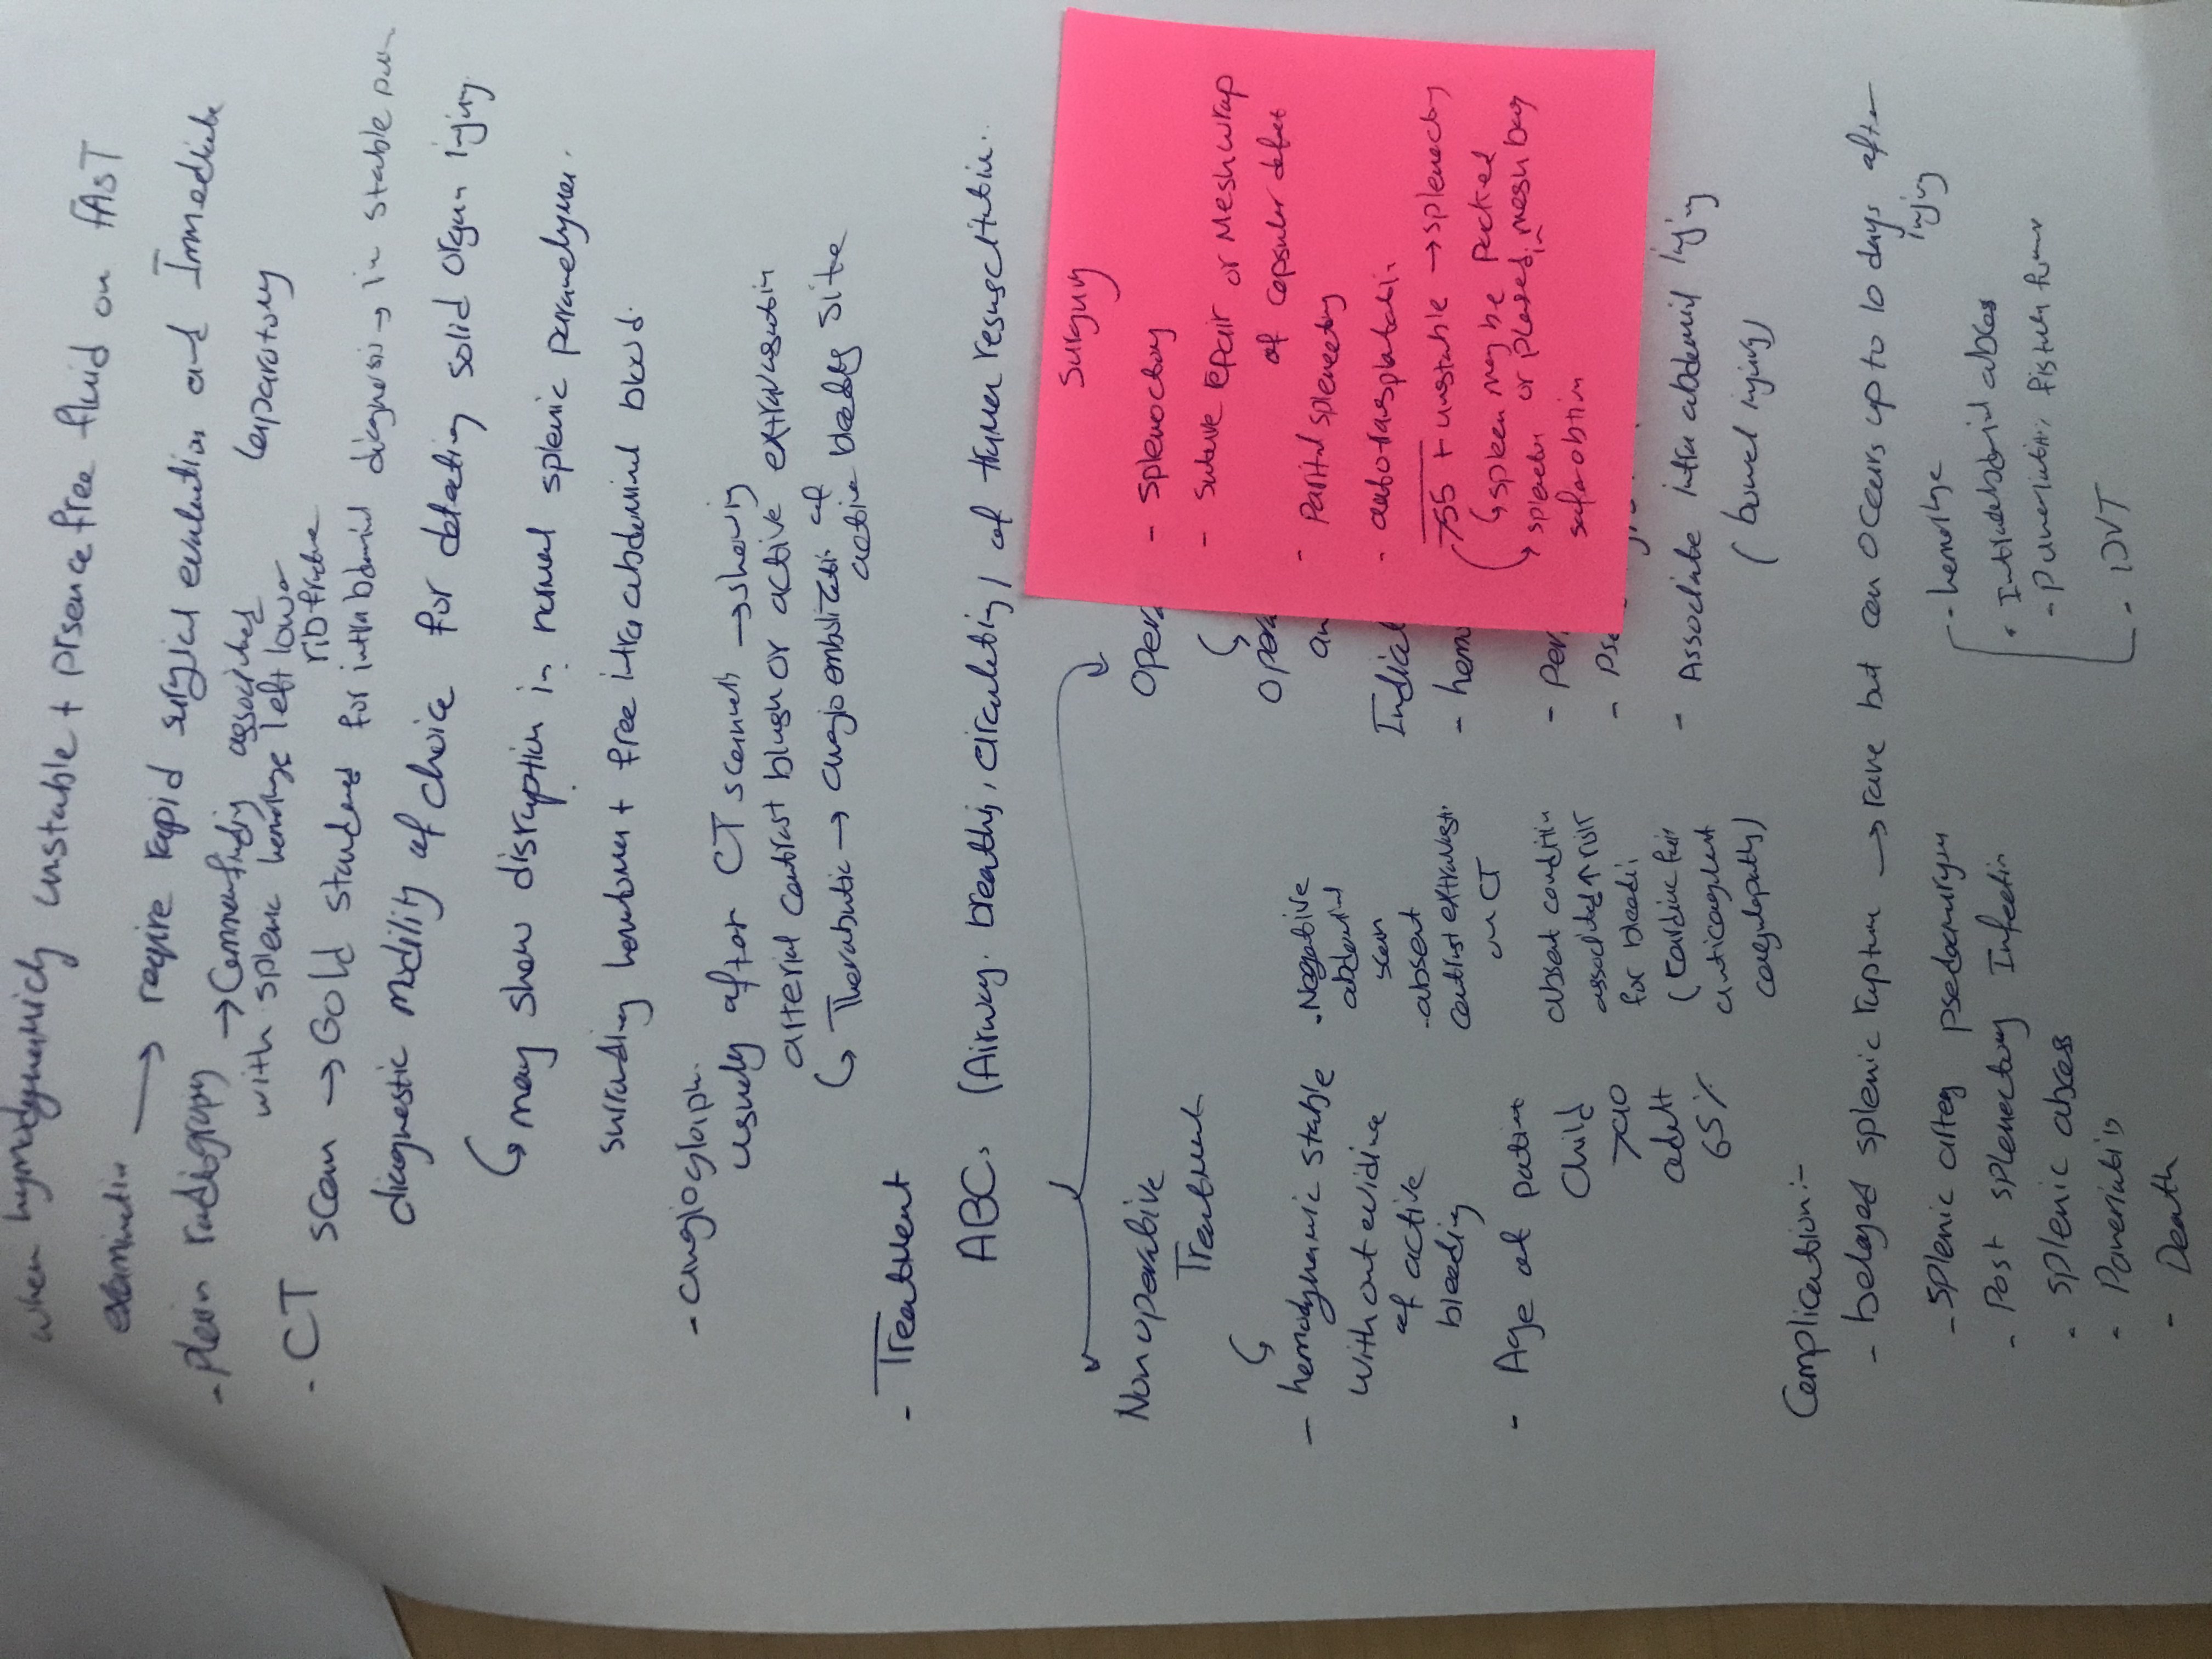 when hymodynamicly unstable + presence free fluid on FAST
examination → require rapid surgical evaluation and Immediate
laparotomy
- plain radiography → Common finding associated
with splenic hemorrhge left lower
rib fracture
- CT scan → Gold standred for intrabdominl diagnosis → in stable
diagnostic modility of choice for detecting solid organ injury.
↳ may show disruption in normal splenic paranchymer.
surrounding hematomer + free intra abdominal blood.
- angiogloiph.
usually after CT scannch → showing
arterial contrast blush or active extravasation
↳ Therabutic → angioembolizati of
active bleeding site
- Treatment
ABC, (Airway. breathis, circulating) of truer resuscitution..
Non operative
Treatment
↳
- hemodynamic stable
without evidine
of active
bleeding
- Age of patien
Child
>90
adult
65%
- Negative
abdominl
scan
- absent
contrast extravast.
on CT
absent condition
associated ↑ risk
for bleedi
(Cardiac fair
anticoagulent
coagulopathy)
Oper
↳
Oper
an
Indica
- hem
- Per
- Pse
- Associate intra abdominl injry
(bowel injury)
Surgury
- Splenoctomy
- Suture repair or Mesh wrap
of capsuler defect
- Parital splenectomy
- autotransplntatin
>55 + unstable → splenectomy
↳ spleen may be packed
↳ splenorr or placed in mesh bag
Complication:-
- belayed splenic rupture → rare but can occurs up to 10 days after
injury
- splenic artey psedoanurysm
- Post splenectomy Infectin
- splenic absces
- Paneriatis
- Death
- hemorrhge
- Intrabdominal absces
- Panceriatis, fistula forma
- DVT